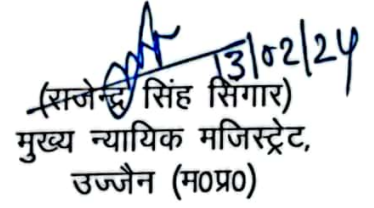 13/02/24
(राजेन्द्र सिंह सिंगार)
मुख्य न्यायिक मजिस्ट्रेट,
उज्जैन (म0प्र0)